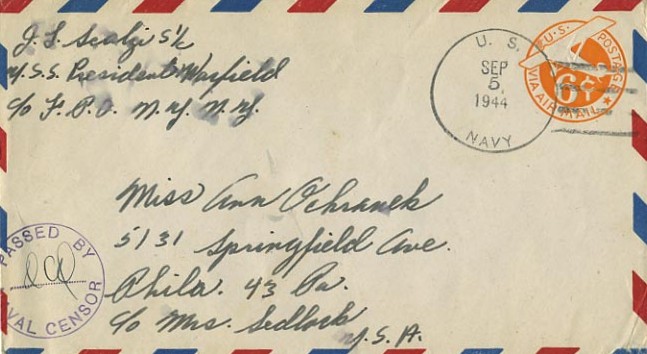 J. S. Scalzi S 1/c
U.S.S. President Warfield
c/o F. P. O. N.Y. N.Y.
U. S.
SEP
5
1944
NAVY
U.S. POSTAGE
6¢
VIA AIR MAIL
Miss Ann Ochranek
5131 Springfield Ave.
Phila. 43 Pa.
c/o Mrs. Sedlock
U.S.A.
PASSED BY
NAVAL CENSOR